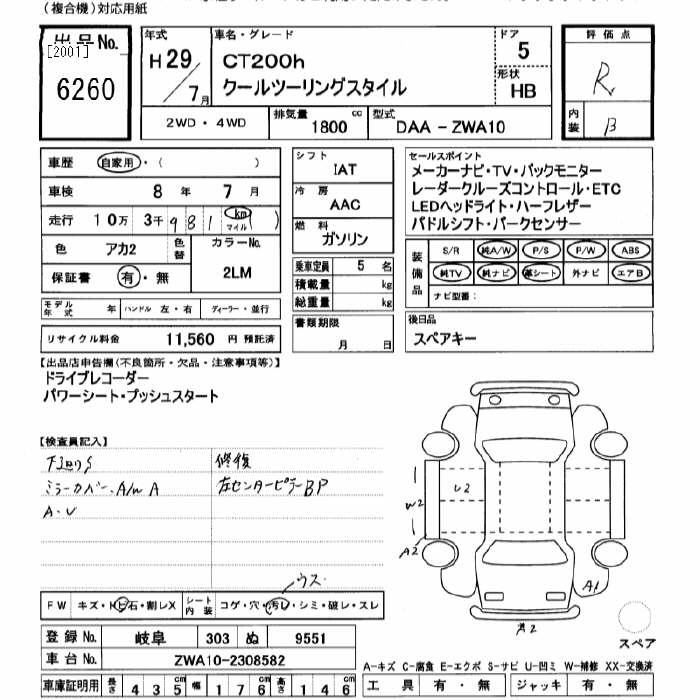 (複合機)対応用紙
出品No.
[2001]
6260
年式
H29/7月
車名・グレード
CT200h
クールツーリングスタイル
ドア
5
形状
HB
評価点
R
内装
B
2WD・4WD
排気量
1800cc
型式
DAA-ZWA10
車歴 自家用・( )
車検 8年 7月
走行 10万 3千981 (km マイル)
色 アカ2 色替
カラーNo.
2LM
保証書 有・無
モデル年式 年 ハンドル 左・右 ディーラー・並行
リサイクル料金 11,560 円 預託済
シフト
IAT
冷房
AAC
燃料
ガソリン
乗車定員 5 名
積載量 kg
総重量 kg
書類期限
月 日
セールスポイント
メーカーナビ・TV・バックモニター
レーダークルーズコントロール・ETC
LEDヘッドライト・ハーフレザー
パドルシフト・パークセンサー
装備品
S/R 純A/W P/S P/W ABS
純TV 純ナビ 革シート 外ナビ エアB
ナビ型番:
後日品
スペアキー
【出品店申告欄(不良箇所・欠品・注意事項等)】
ドライブレコーダー
パワーシート・プッシュスタート
【検査員記入】
下回りS
ミラーカバー、A/W A
A・U
修復
左センターピラーBP
U2
W2
A2
A1
A2
スペア
FW キズ・トビ石・割レX
シート内装 コゲ・穴・汚レ・シミ・破レ・スレ
ウス
登録No. 岐阜 303 ぬ 9551
車台No. ZWA10-2308582
車庫証明用 長さ 435cm 幅 176cm 高さ 146cm
A-キズ C-腐食 E-エクボ S-サビ U-凹ミ W-補修 XX-交換済
工具 有・無 ジャッキ 有・無